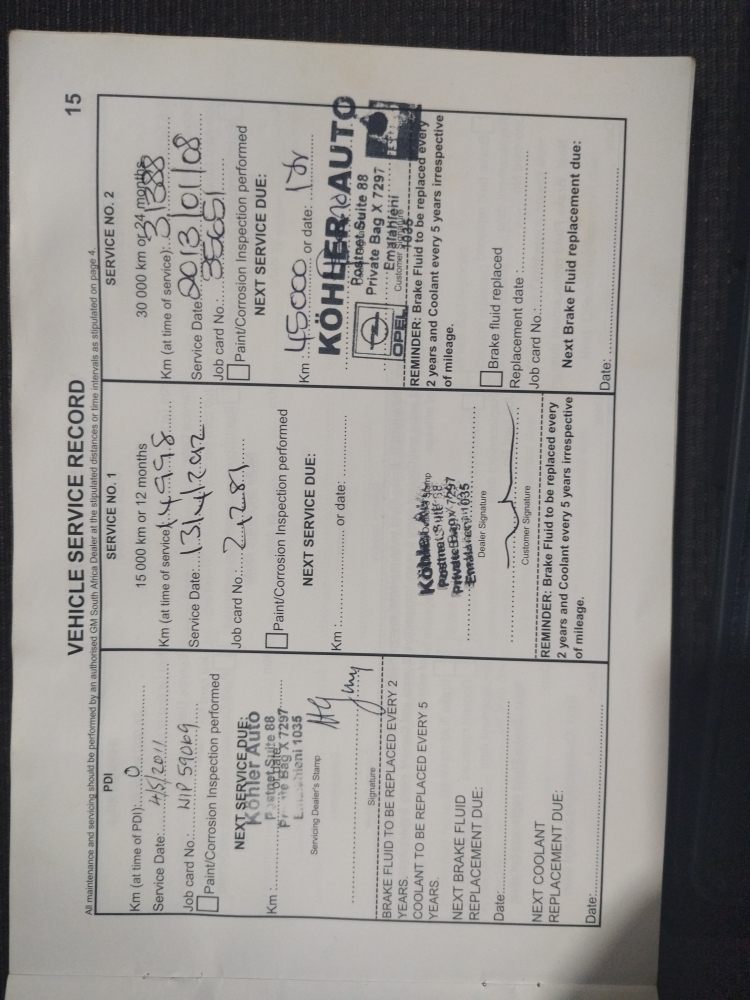 15
VEHICLE SERVICE RECORD
All maintenance and servicing should be performed by an authorised GM South Africa Dealer at the stipulated distances or time intervals as stipulated on page 4.
PDI
Km (at time of PDI): 0
Service Date: 4/5/2011
Job card No.: WIP 59069
Paint/Corrosion Inspection performed
NEXT SERVICE DUE:
Köhler Auto
Km : or date
Postnet Suite 88
Private Bag X 7297
Emalahleni 1035
Servicing Dealer's Stamp
Signature
BRAKE FLUID TO BE REPLACED EVERY 2
YEARS.
COOLANT TO BE REPLACED EVERY 5
YEARS.
NEXT BRAKE FLUID
REPLACEMENT DUE:
Date:
NEXT COOLANT
REPLACEMENT DUE:
Date:
SERVICE NO. 1
15 000 km or 12 months
Km (at time of service): 14998
Service Date:
Job card No.:
Paint/Corrosion Inspection performed
NEXT SERVICE DUE:
Km : or date:
Köhler Auto
Postnet Suite 88
Private Bag X 7297
Emalahleni 1035
Dealer Signature
Customer Signature
REMINDER: Brake Fluid to be replaced every
2 years and Coolant every 5 years irrespective
of mileage.
SERVICE NO. 2
30 000 km or 24 months
Km (at time of service): 31388
Service Date: 2013/01/08
Job card No.: 35651
Paint/Corrosion Inspection performed
NEXT SERVICE DUE:
Km : 45000 or date: 1 yr
KÖHLER AUTO
Postnet Suite 88
Private Bag X 7297
Emalahleni
1035
OPEL
Customer Signature
REMINDER: Brake Fluid to be replaced every
2 years and Coolant every 5 years irrespective
of mileage.
Brake fluid replaced
Replacement date :
Job card No.:
Next Brake Fluid replacement due:
Date: